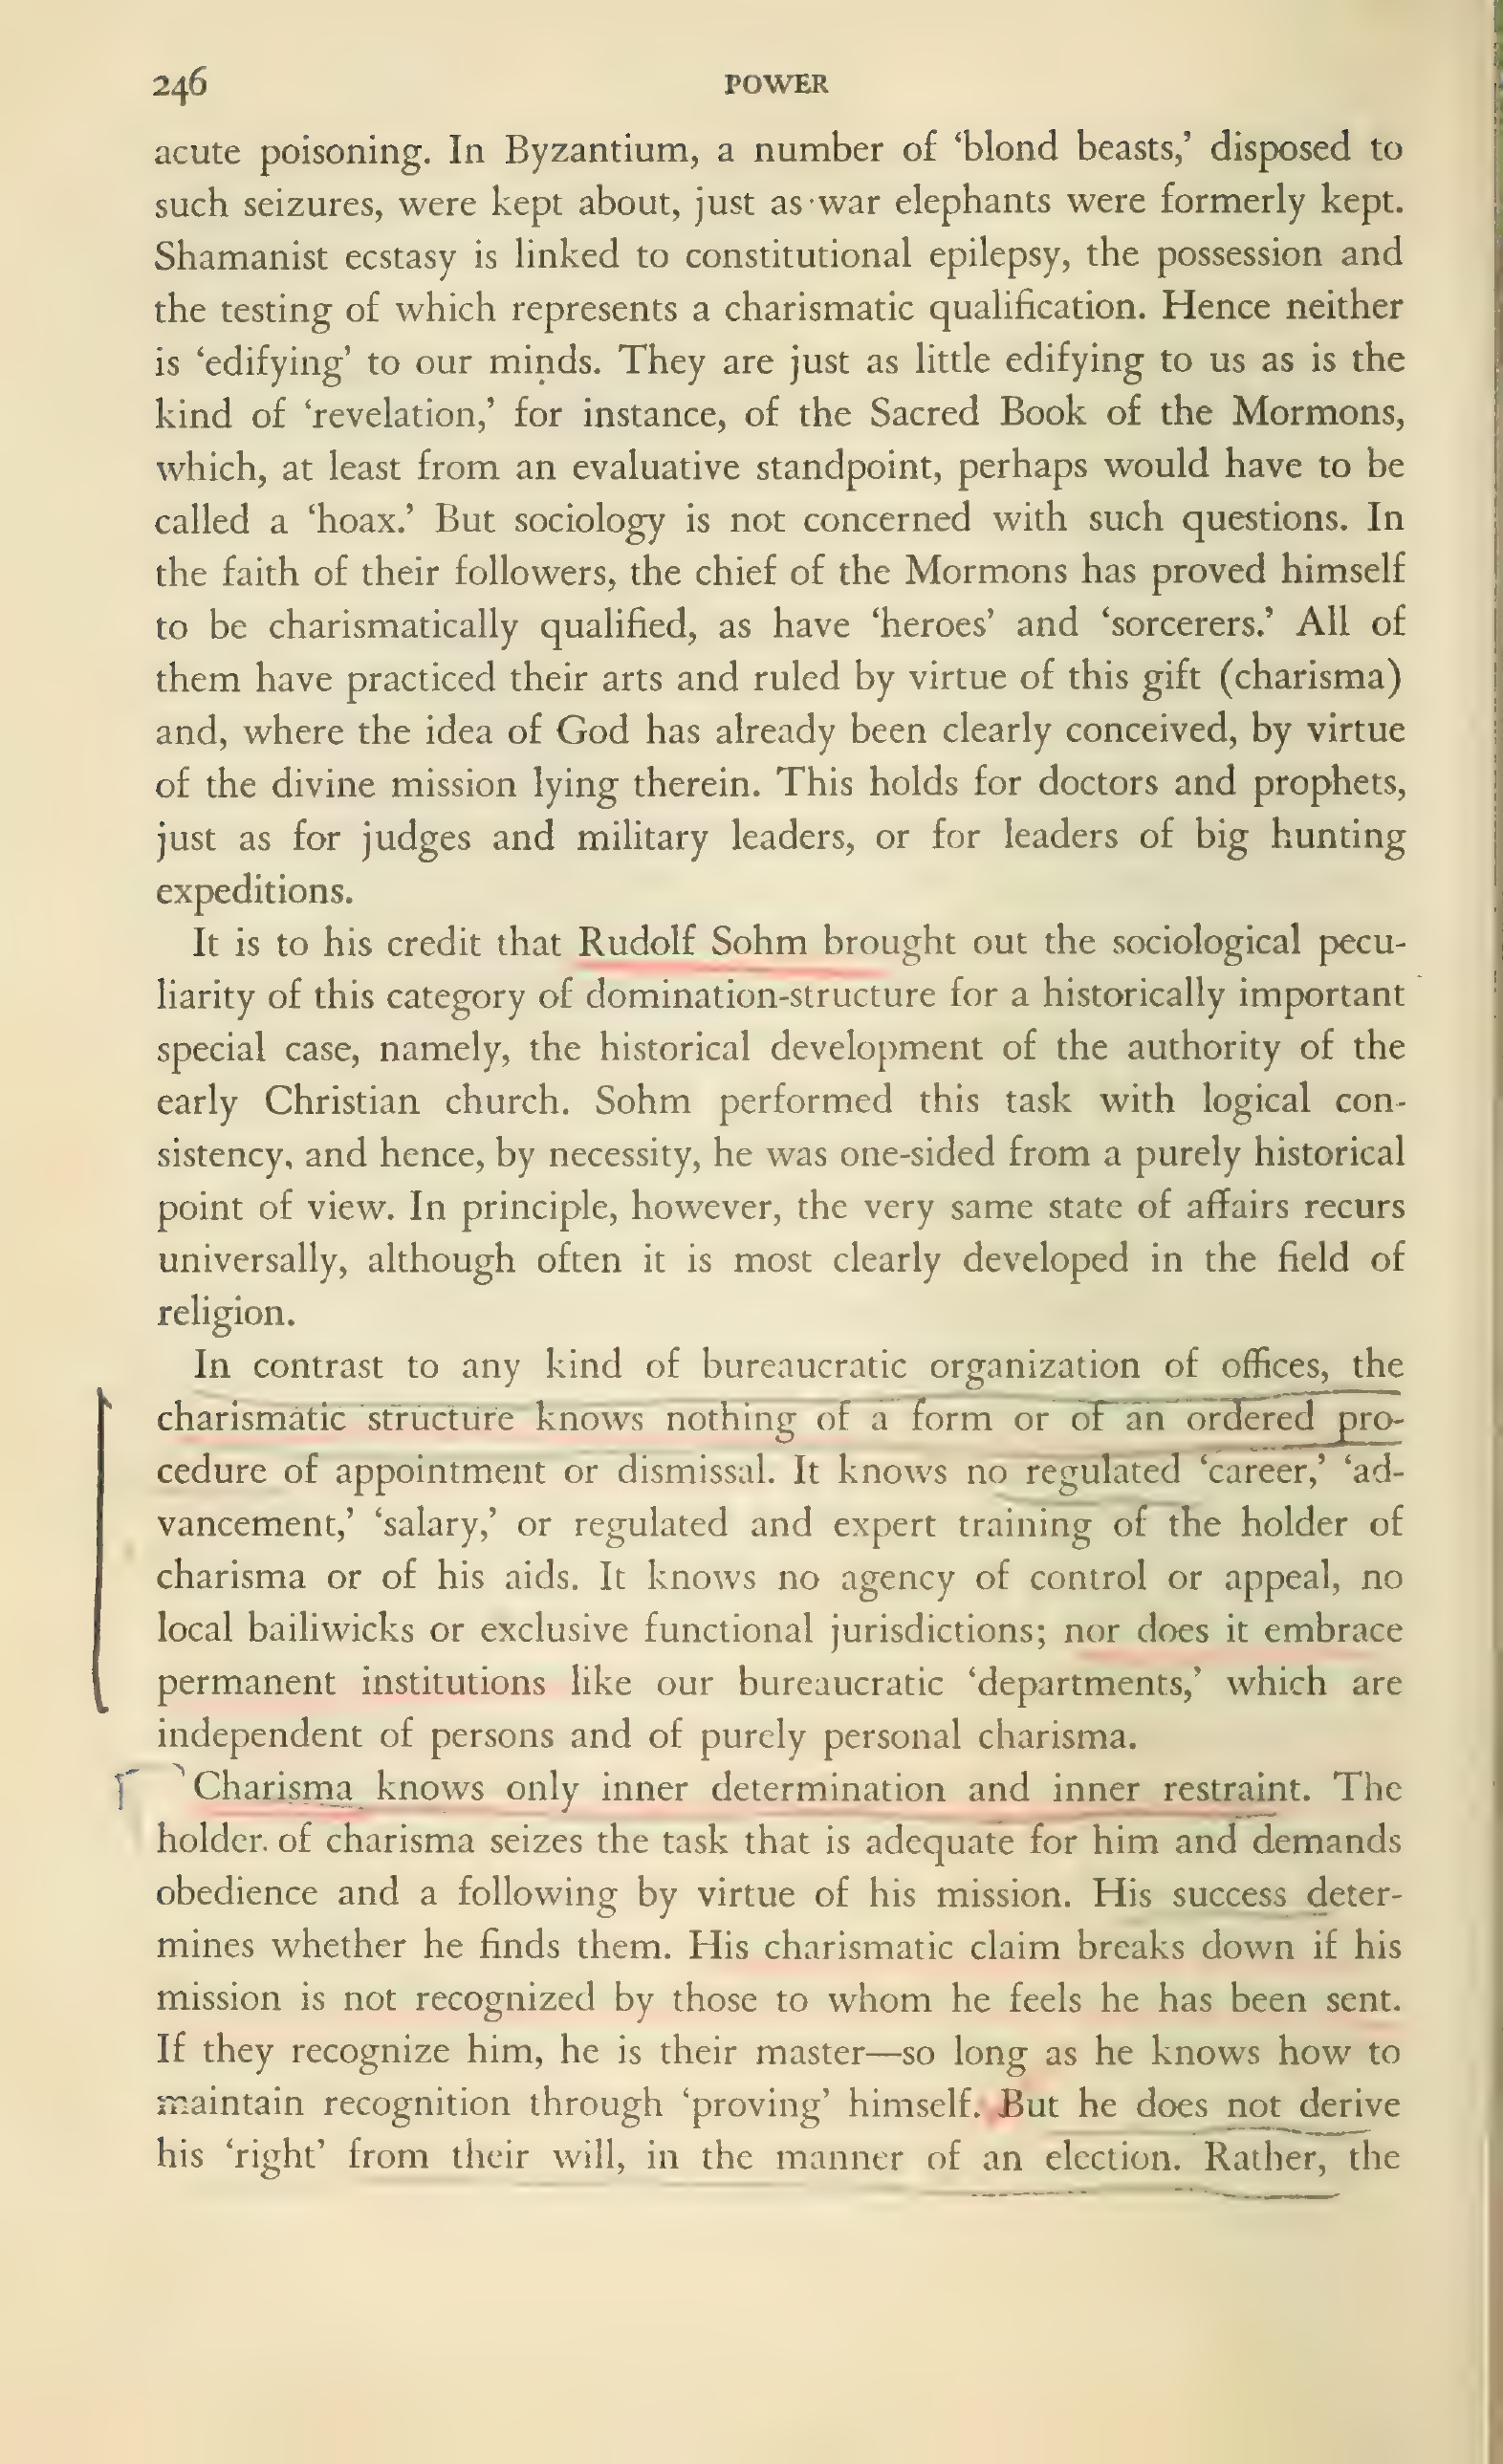 246 POWER
acute poisoning. In Byzantium, a number of ‘blond beasts,’ disposed to
such seizures, were kept about, just as war elephants were formerly kept.
Shamanist ecstasy is linked to constitutional epilepsy, the possession and
the testing of which represents a charismatic qualification. Hence neither
is ‘edifying’ to our minds. They are just as little edifying to us as is the
kind of ‘revelation,’ for instance, of the Sacred Book of the Mormons,
which, at least from an evaluative standpoint, perhaps would have to be
called a ‘hoax.’ But sociology is not concerned with such questions. In
the faith of their followers, the chief of the Mormons has proved himself
to be charismatically qualified, as have ‘heroes’ and ‘sorcerers.’ All of
them have practiced their arts and ruled by virtue of this gift (charisma)
and, where the idea of God has already been clearly conceived, by virtue
of the divine mission lying therein. This holds for doctors and prophets,
just as for judges and military leaders, or for leaders of big hunting
expeditions.
It is to his credit that Rudolf Sohm brought out the sociological pecu-
liarity of this category of domination-structure for a historically important
special case, namely, the historical development of the authority of the
early Christian church. Sohm performed this task with logical con-
sistency, and hence, by necessity, he was one-sided from a purely historical
point of view. In principle, however, the very same state of affairs recurs
universally, although often it is most clearly developed in the field of
religion.
In contrast to any kind of bureaucratic organization of offices, the
charismatic structure knows nothing of a form or of an ordered pro-
cedure of appointment or dismissal. It knows no regulated ‘career,’ ‘ad-
vancement,’ ‘salary,’ or regulated and expert training of the holder of
charisma or of his aids. It knows no agency of control or appeal, no
local bailiwicks or exclusive functional jurisdictions; nor does it embrace
permanent institutions like our bureaucratic ‘departments,’ which are
independent of persons and of purely personal charisma.
Charisma knows only inner determination and inner restraint. The
holder of charisma seizes the task that is adequate for him and demands
obedience and a following by virtue of his mission. His success deter-
mines whether he finds them. His charismatic claim breaks down if his
mission is not recognized by those to whom he feels he has been sent.
If they recognize him, he is their master—so long as he knows how to
maintain recognition through ‘proving’ himself. But he does not derive
his ‘right’ from their will, in the manner of an election. Rather, the